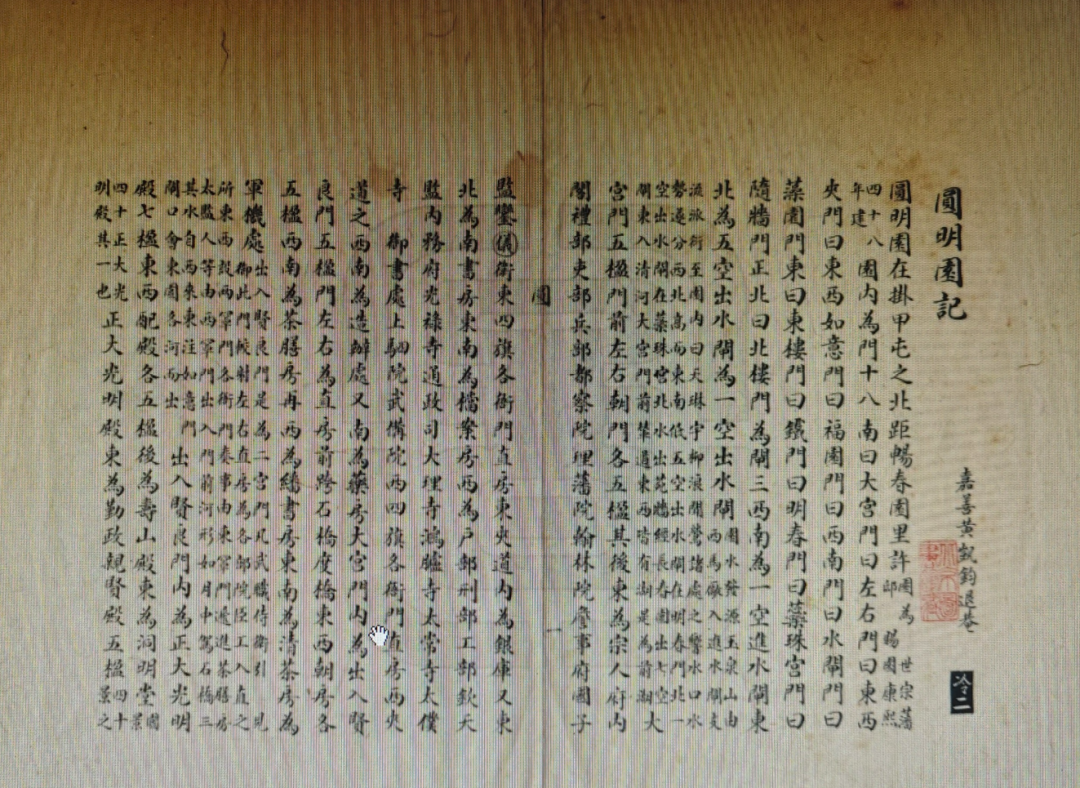 圓明園記
嘉善黃凱鈞退菴
冷二
圓明園在掛甲屯之北距暢春園里許園為 世宗藩邸 賜園康熙
四十八年建園內為門十八南曰大宮門曰左右門曰東西
夾門曰東西如意門曰福園門曰西南門曰水閘門曰
藻園門東曰東樓門曰鐵門曰明春門曰蘂珠宮門曰
隨牆門正北曰北樓門為閘三西南為一空進水閘東
北為五空出水閘為一空出水閘園水發源玉泉山由西馬廠入進水閘支
流派衍至園內曰天琳宇柳浪聞鶯諸處之響水口水
勢遂分西北高而東南低五空出水閘在明春門北一
空出水閘在蘂珠宮北水出苑牆經長春園出七空
閘東入清河大宮門前輦道東西皆有湖是為前湖大
宮門五楹門前左右朝門各五楹其後東為宗人府內
閣禮部吏部兵部都察院理藩院翰林院詹事府國子
園
一
監鑾儀衛東四旗各衙門直房東夾道內為銀庫又東
北為南書房東南為檔案房西為戶部刑部工部欽天
監內務府光祿寺通政司大理寺鴻臚寺太常寺太僕
寺 御書處上駟院武備院西四旗各衙門直房西夾
道之西南為造辦處又南為藥房大宮門內為出入賢
良門五楹門左右為直房前跨石橋度橋東西朝房各
五楹西南為茶膳房再西為繙書房東南為清茶房為
軍機處出入賢良門是為二宮門凡武職侍衛引 見
御此門較射左右直房為各部院臣工入直之
所東西設兩罩門各衙門奏事由東罩門遞進茶膳房
太監人等由西罩門出入門前河形如月中駕石橋三
其水自西來東注如意門
閘口會東園各河而出出入賢良門內為正大光明
殿七楹東西配殿各五楹後為壽山殿東為洞明堂園景
四十正大光明殿其一也正大光明殿東為勤政親賢殿五楹四十景之